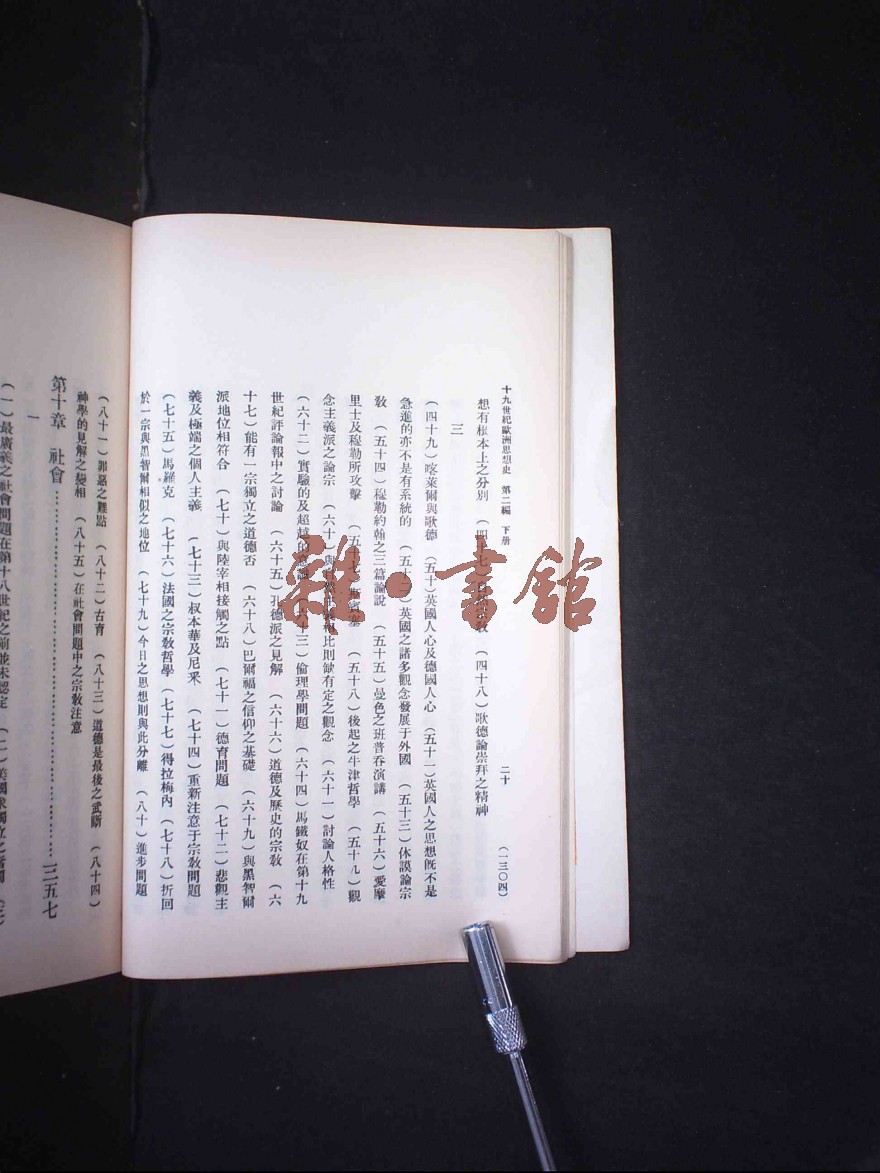 十九世紀歐洲思想史 第二編 下册 二十 (一三〇四)
想有根本上之分別 (四十七) 宗教 (四十八) 歌德論崇拜之精神
三
(四十九) 喀萊爾與歌德 (五十) 英國人心及德國人心 (五十一) 英國人之思想旣不是
急進的亦不是有系統的 (五十二) 英國之諸多觀念發展于外國 (五十三) 休謨論宗
敎 (五十四) 穆勒約翰之三篇論說 (五十五) 曼色之班普呑演講 (五十六) 愛摩
里士及穆勒所攻擊 (五十七) 斯賓塞 (五十八) 後起之牛津哲學 (五十九) 觀
念主義派之論宗 (六十) 與 比則缺有定之觀念 (六十一) 討論人格性
(六十二) 實驗的及超越的 (六十三) 倫理學問題 (六十四) 馬鐵奴在第十九
世紀評論報中之討論 (六十五) 孔德派之見解 (六十六) 道德及歷史的宗敎 (六
十七) 能有一宗獨立之道德否 (六十八) 巴爾福之信仰之基礎 (六十九) 與黑智爾
派地位相符合 (七十) 與陸宰相接觸之點 (七十一) 德育問題 (七十二) 悲觀主
義及極端之個人主義 (七十三) 叔本華及尼采 (七十四) 重新注意于宗敎問題
(七十五) 馬羅克 (七十六) 法國之宗敎哲學 (七十七) 得拉梅內 (七十八) 折回
於一宗與黑智爾相似之地位 (七十九) 今日之思想則與此分離 (八十) 進步問題
(八十一) 罪惡之難點 (八十二) 古育 (八十三) 道德是最後之武斷 (八十四)
神學的見解之變相 (八十五) 在社會問題中之宗敎注意
第十章 社會……………………三五七
一
(一) 最廣義之社會問題在第十八世紀之前並未認定 (二) 美國求獨立之 (三)
雜·書館